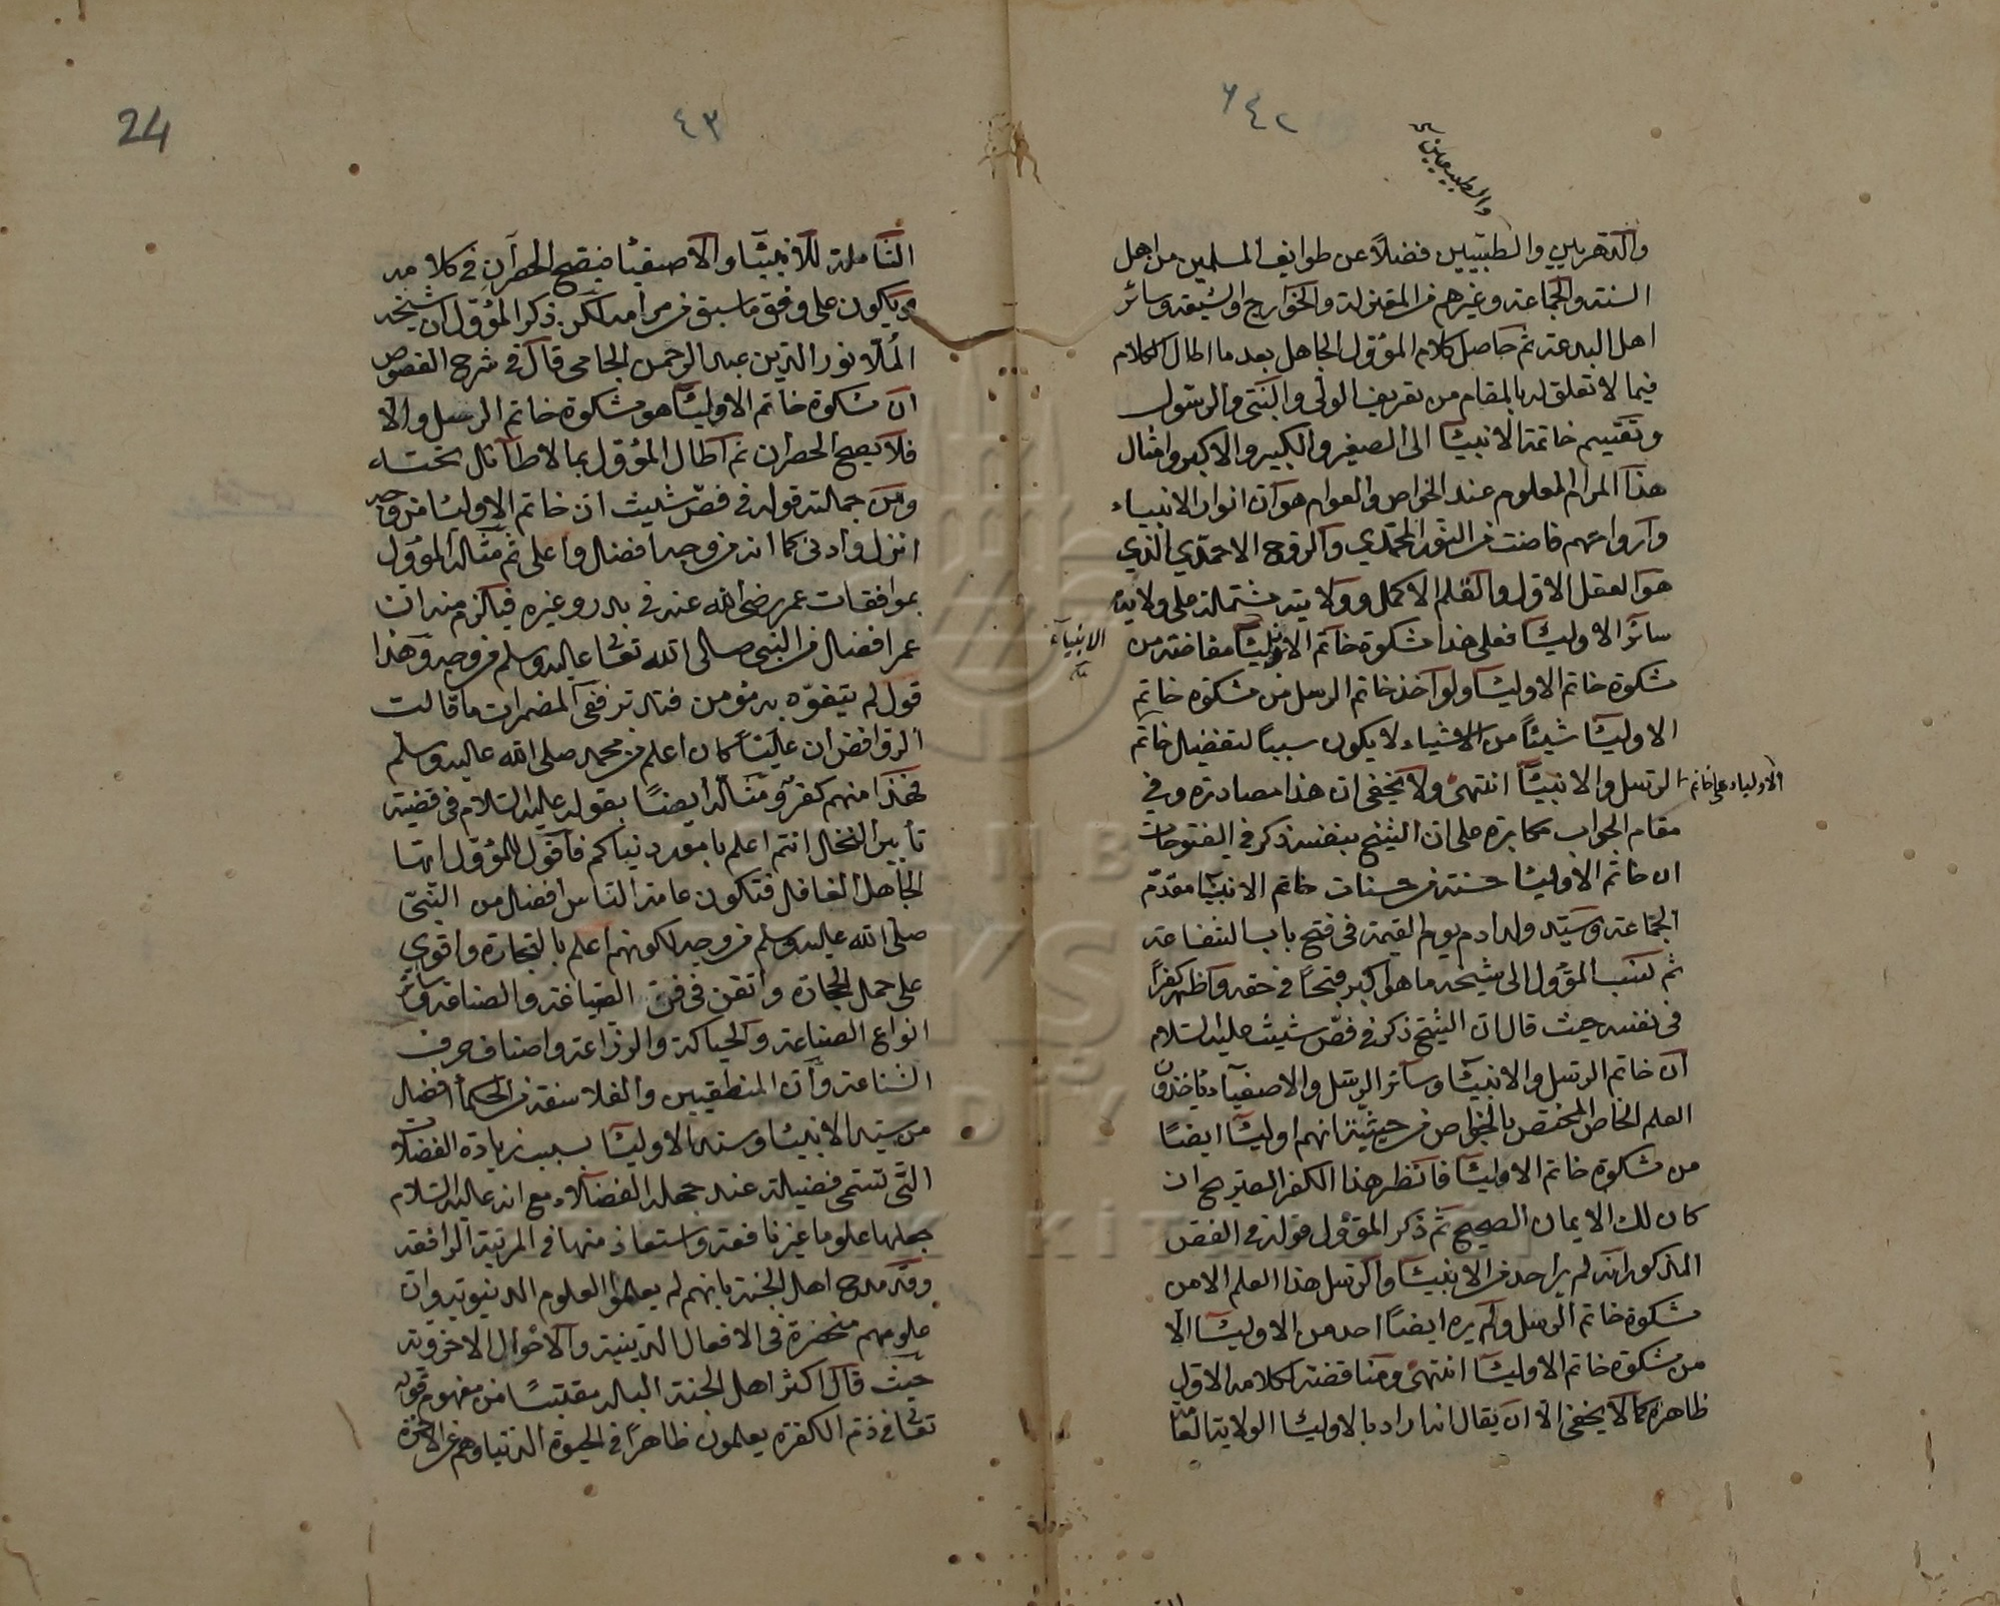 ٦٤٢
والطبيعيين
والدهريين والطبيين فضلاً عن طوايف المسلمين من اهل
السنة والجماعة وغيرهم من المعتزلة والخوارج والشيعة وسائر
اهل البدعة ثم حاصل كلام المؤول الجاهل بعدما اطال الكلام
فيما لا تعلق له بالمقام من تعريف الولي والنبي والرسول
وتقسيم خاتمة الانبيا الى الصغير والكبير والاكبر وامثال
هذا المرام المعلوم عند الخواص والعوام هو ان انوار الانبياء
وارواحهم فاضت من النور المحمدي والروح الاحمدي الذي
هو العقل الاول والقلم الاكمل وولايته مشتملة على ولاية
سائر الاوليا فعلى هذا مشكوة خاتم الاوليا مفاضة من
الانبياء
مشكوة خاتم الاوليا ولو اخذ خاتم الرسل من مشكوة خاتم
الاوليا شيئاً من الاشياء لا يكون سبباً لتفضيل خاتم
الاولياء على خاتم
الرسل والانبيا انتهى ولا يخفى ان هذا مصادرة وفي
مقام الجواب مكابرة على ان الشيخ بنفسه ذكر في الفتوحات
ان خاتم الاوليا حسنة من حسنات خاتم الانبيا مقدم
الجماعة وسيد ولد ادم يوم القيمة في فتح باب الشفاعة
ثم نسب المؤول الى شيخه ما هو اكبر قبحاً في حقه واظهر كفراً
في نفسه حيث قال ان الشيخ ذكر في فص شيث عليه السلام
ان خاتم الرسل والانبيا وسائر الرسل والاصفياء ياخذون
العلم الخاص المختص بالخواص من حيثية انهم اوليا ايضاً
من مشكوة خاتم الاوليا فانظر هذا الكفر الصريح ان
كان لك الايمان الصحيح ثم ذكر المؤول قوله في الفص
المذكور انه لم ير احد من الانبيا والرسل هذا العلم الا من
مشكوة خاتم الرسل ولم يره ايضاً احد من الاوليا الا
من مشكوة خاتم الاوليا انتهى ومناقضة كلامه الاول
ظاهرة كما لا يخفى الا ان يقال انه اراد بالاوليا الولاية العامة
٤٣
24
الشاملة للانبيا والاصفيا فيصح الحصران في كلامه
ويكون على وفق ما سبق من مرامه لكن ذكر المؤول ان شيخه
الملا نور الدين عبد الرحمن الجامي قال في شرح الفصوص
ان مشكوة خاتم الاوليا هو مشكوة خاتم الرسل والا
فلا يصح الحصران ثم اطال المؤول بما لا طائل تحته
ومن جملته قوله في فص شيث ان خاتم الاوليا من وجه
انزل وادنى كما انه من وجه افضل واعلى ثم مثاله المؤول
بموافقات عمر رضي الله عنه في بدر وغيره فيلزم منه ان
عمر افضل من النبي صلى الله تعا عليه وسلم من وجه وهذا
قول لم يتفوه به مؤمن فتدبر ففي المضمرات ما قالت
الروافض ان علياً كان اعلم من محمد صلى الله عليه وسلم
فهذا منهم كفر ومثاله ايضاً بقوله عليه السلام في قضية
تأبير النخل انتم اعلم بامور دنياكم فاقول للمؤول ايها
الجاهل الغافل فتكون عامة الناس افضل من النبي
صلى الله عليه وسلم من وجه لكونهم اعلم بالتجارة واقوي
على حمل الحجارة واتقن في فن الصياغة والصناعة وسائر
انواع الصناعة والحياكة والزراعة واصناف حرف
الشناعة وان المنطقيين والفلاسفة من الحكما افضل
من سيد الانبيا وسند الاوليا بسبب زيادة الفضلات
التي تسمى فضيلة عند جهلة الفضلاء مع انه عليه السلام
جعلها علوما غير نافعة واستعاذ منها في المرتبة الرافعة
وقد مدح اهل الجنة بانهم لم يعلموا العلوم الدنيوية وان
علومهم منحصرة في الافعال الدينية والاحوال الاخروية
حيث قال اكثر اهل الجنة البله مقتبسًا من مفهوم قوله
تعا في ذم الكفرة يعلمون ظاهراً في الحيوة الدنيا وهم عن الاخرة